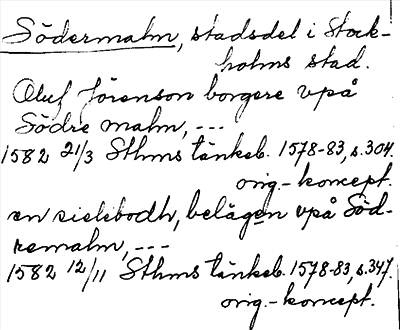 Södermalm, stadsdel i Stock-
holms stad.
Oluf Jörenson borgere vpå
Södre malm, ---
1582 21/3 Sthms tänkeb. 1578-83, s. 304.
orig.-koncept.
en sielebodh, belägen vpå Söd-
remalm, ---
1582 12/11 Sthms tänkeb. 1578-83, s. 347.
orig.-koncept.